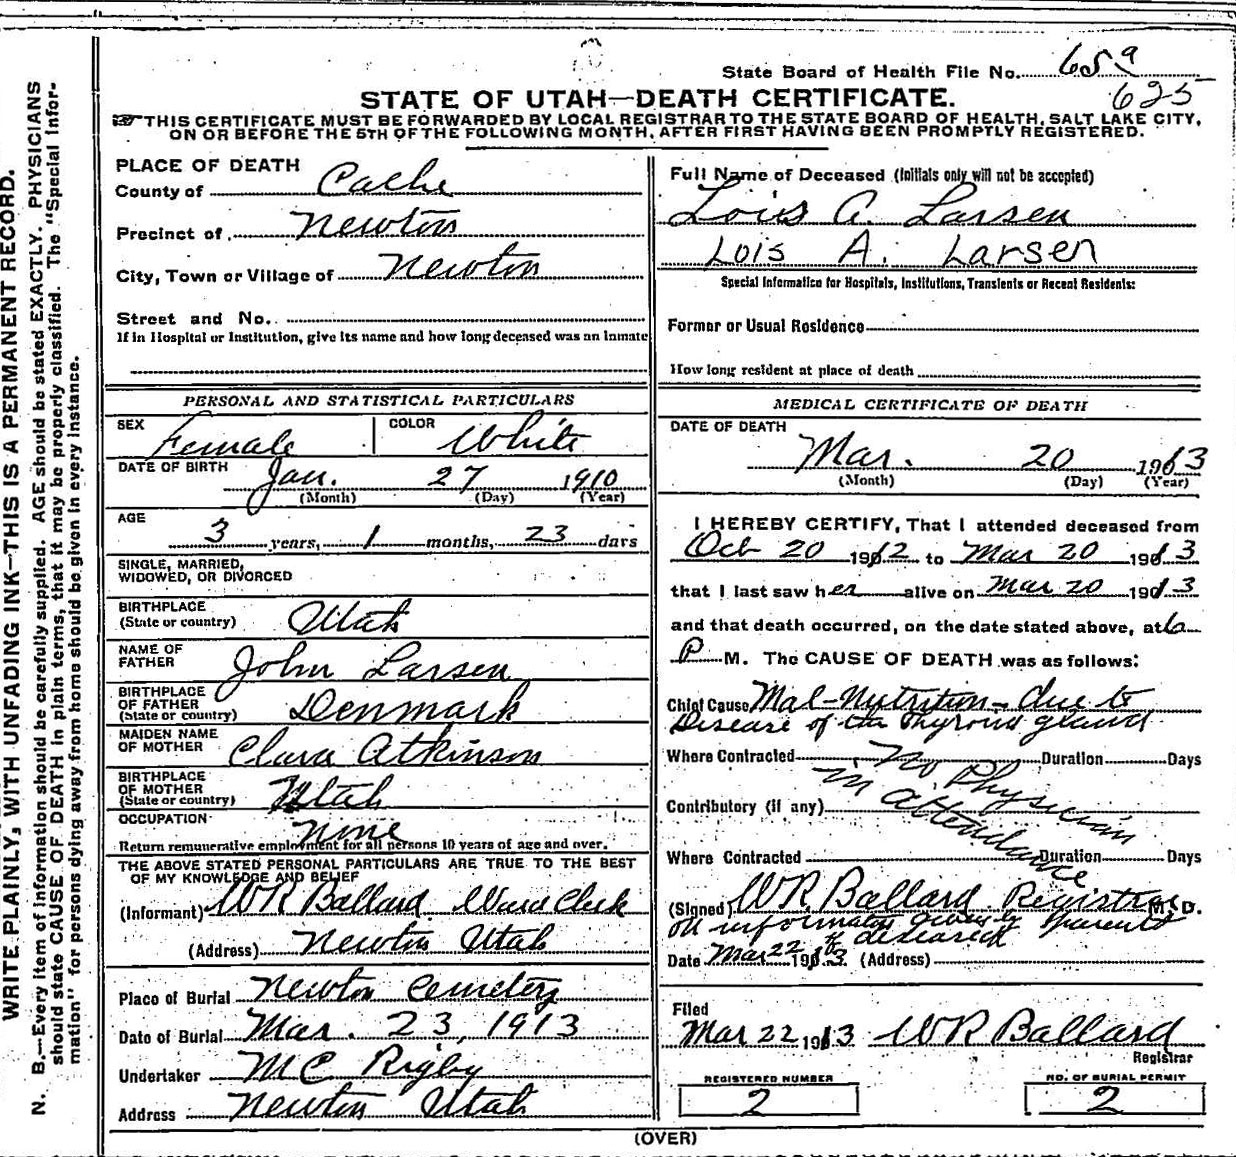 State Board of Health File No. 659
625
STATE OF UTAH—DEATH CERTIFICATE.
THIS CERTIFICATE MUST BE FORWARDED BY LOCAL REGISTRAR TO THE STATE BOARD OF HEALTH, SALT LAKE CITY,
ON OR BEFORE THE 5TH OF THE FOLLOWING MONTH, AFTER FIRST HAVING BEEN PROMPTLY REGISTERED.
WRITE PLAINLY, WITH UNFADING INK—THIS IS A PERMANENT RECORD.
N. B.—Every item of information should be carefully supplied. AGE should be stated EXACTLY. PHYSICIANS
should state CAUSE OF DEATH in plain terms, that it may be properly classified. The "Special Infor-
mation" for persons dying away from home should be given in every instance.
PLACE OF DEATH
County of Cache
Precinct of Newton
City, Town or Village of Newton
Street and No.
If in Hospital or Institution, give its name and how long deceased was an inmate
PERSONAL AND STATISTICAL PARTICULARS
SEX Female COLOR White
DATE OF BIRTH Jan. 27 1910
(Month) (Day) (Year)
AGE 3 years, 1 months, 23 days
SINGLE, MARRIED,
WIDOWED, OR DIVORCED
BIRTHPLACE
(State or country) Utah
NAME OF
FATHER John Larsen
BIRTHPLACE
OF FATHER
(State or country) Denmark
MAIDEN NAME
OF MOTHER Clara Atkinson
BIRTHPLACE
OF MOTHER
(State or country) Utah
OCCUPATION None
Return remunerative employment for all persons 10 years of age and over.
THE ABOVE STATED PERSONAL PARTICULARS ARE TRUE TO THE BEST
OF MY KNOWLEDGE AND BELIEF
(Informant) WR Ballard Ward Clerk
(Address) Newton Utah
Place of Burial Newton Cemetery
Date of Burial Mar. 23, 1913
Undertaker MC Rigby
Address Newton Utah
Full Name of Deceased (Initials only will not be accepted)
Lois A. Larsen
Lois A. Larsen
Special Information for Hospitals, Institutions, Transients or Recent Residents:
Former or Usual Residence
How long resident at place of death
MEDICAL CERTIFICATE OF DEATH
DATE OF DEATH
Mar. 20 1913
(Month) (Day) (Year)
I HEREBY CERTIFY, That I attended deceased from
Oct 20 1912 to Mar 20 1913
that I last saw her alive on Mar 20 1913
and that death occurred, on the date stated above, at 6
P M. The CAUSE OF DEATH was as follows:
Chief Cause Mal-Nutrition - due to
Disease of the Thyroid gland
Where Contracted Duration Days
No Physician
in attendance
Contributory (if any)
Where Contracted Duration Days
(Signed) WR Ballard Registrar M. D.
on information given by parents
of deseased
Date Mar 22 1913 (Address)
Filed
Mar 22 1913 WR Ballard
Registrar
REGISTERED NUMBER
2
NO. OF BURIAL PERMIT
2
(OVER)